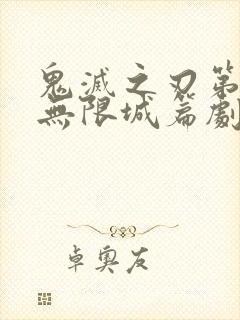 鬼滅之刃第
無限城篇劇
卓奧友